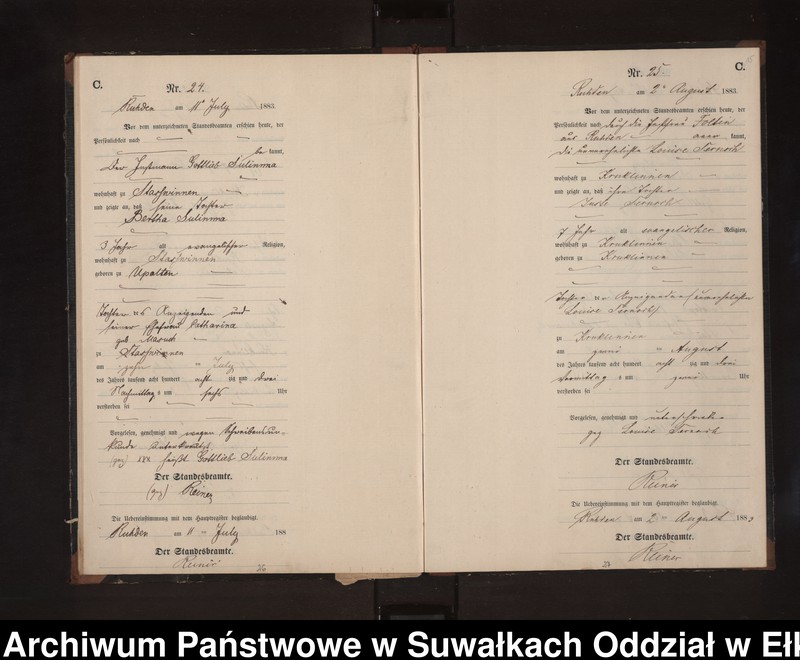 C.
Nr. 24.
Ruhden am 11ten July 1883.
Vor dem unterzeichneten Standesbeamten erschien heute, der
Persönlichkeit nach
be kannt,
Der Instmann Gottlieb Sulimma
wohnhaft zu Stasswinnen
und zeigte an, daß seine Tochter
Bertha Sulimma
3 Jahr alt evangelischer Religion,
wohnhaft zu Stasswinnen
geboren zu Upalten
Tochter des Anzeigenden und
seiner Ehefrau Catharina
geb
zu Stasswinnen
am zehn ten July
des Jahres tausend acht hundert acht zig und drei
Nachmittags um sechs Uhr
verstorben sei
Vorgelesen, genehmigt und wegen Schreibensun-
kunde unterkreuzt
(gez) XXX heißt Gottlieb Sulimma
Der Standesbeamte.
(gez) Reiner
Die Uebereinstimmung mit dem Hauptregister beglaubigt.
Ruhden am 11 ten July 188
Der Standesbeamte.
Reiner
26
Nr. 25. C.
Ruhden am 2ten August 1883.
Vor dem unterzeichneten Standesbeamten erschien heute, der
Persönlichkeit nach durch die
aus Ruhden kannt,
die unverehelichte Louise
wohnhaft zu Kruklinnen
und zeigte an, daß ihre Tochter
7 Jahr alt evangelischer Religion,
wohnhaft zu Kruklinnen
geboren zu Kruklinnen
Tochter der Anzeigenden unverehelichten
Louise
zu Kruklinnen
am zwei ten August
des Jahres tausend acht hundert acht zig und drei
Vormittag s um zwei Uhr
verstorben sei
Vorgelesen, genehmigt und unterschrieben
gez Louise
Der Standesbeamte.
Reiner
Die Uebereinstimmung mit dem Hauptregister beglaubigt.
Ruhden am 2 ten August 1883
Der Standesbeamte.
Reiner
27
Archiwum Państwowe w Suwałkach Oddział w Eł